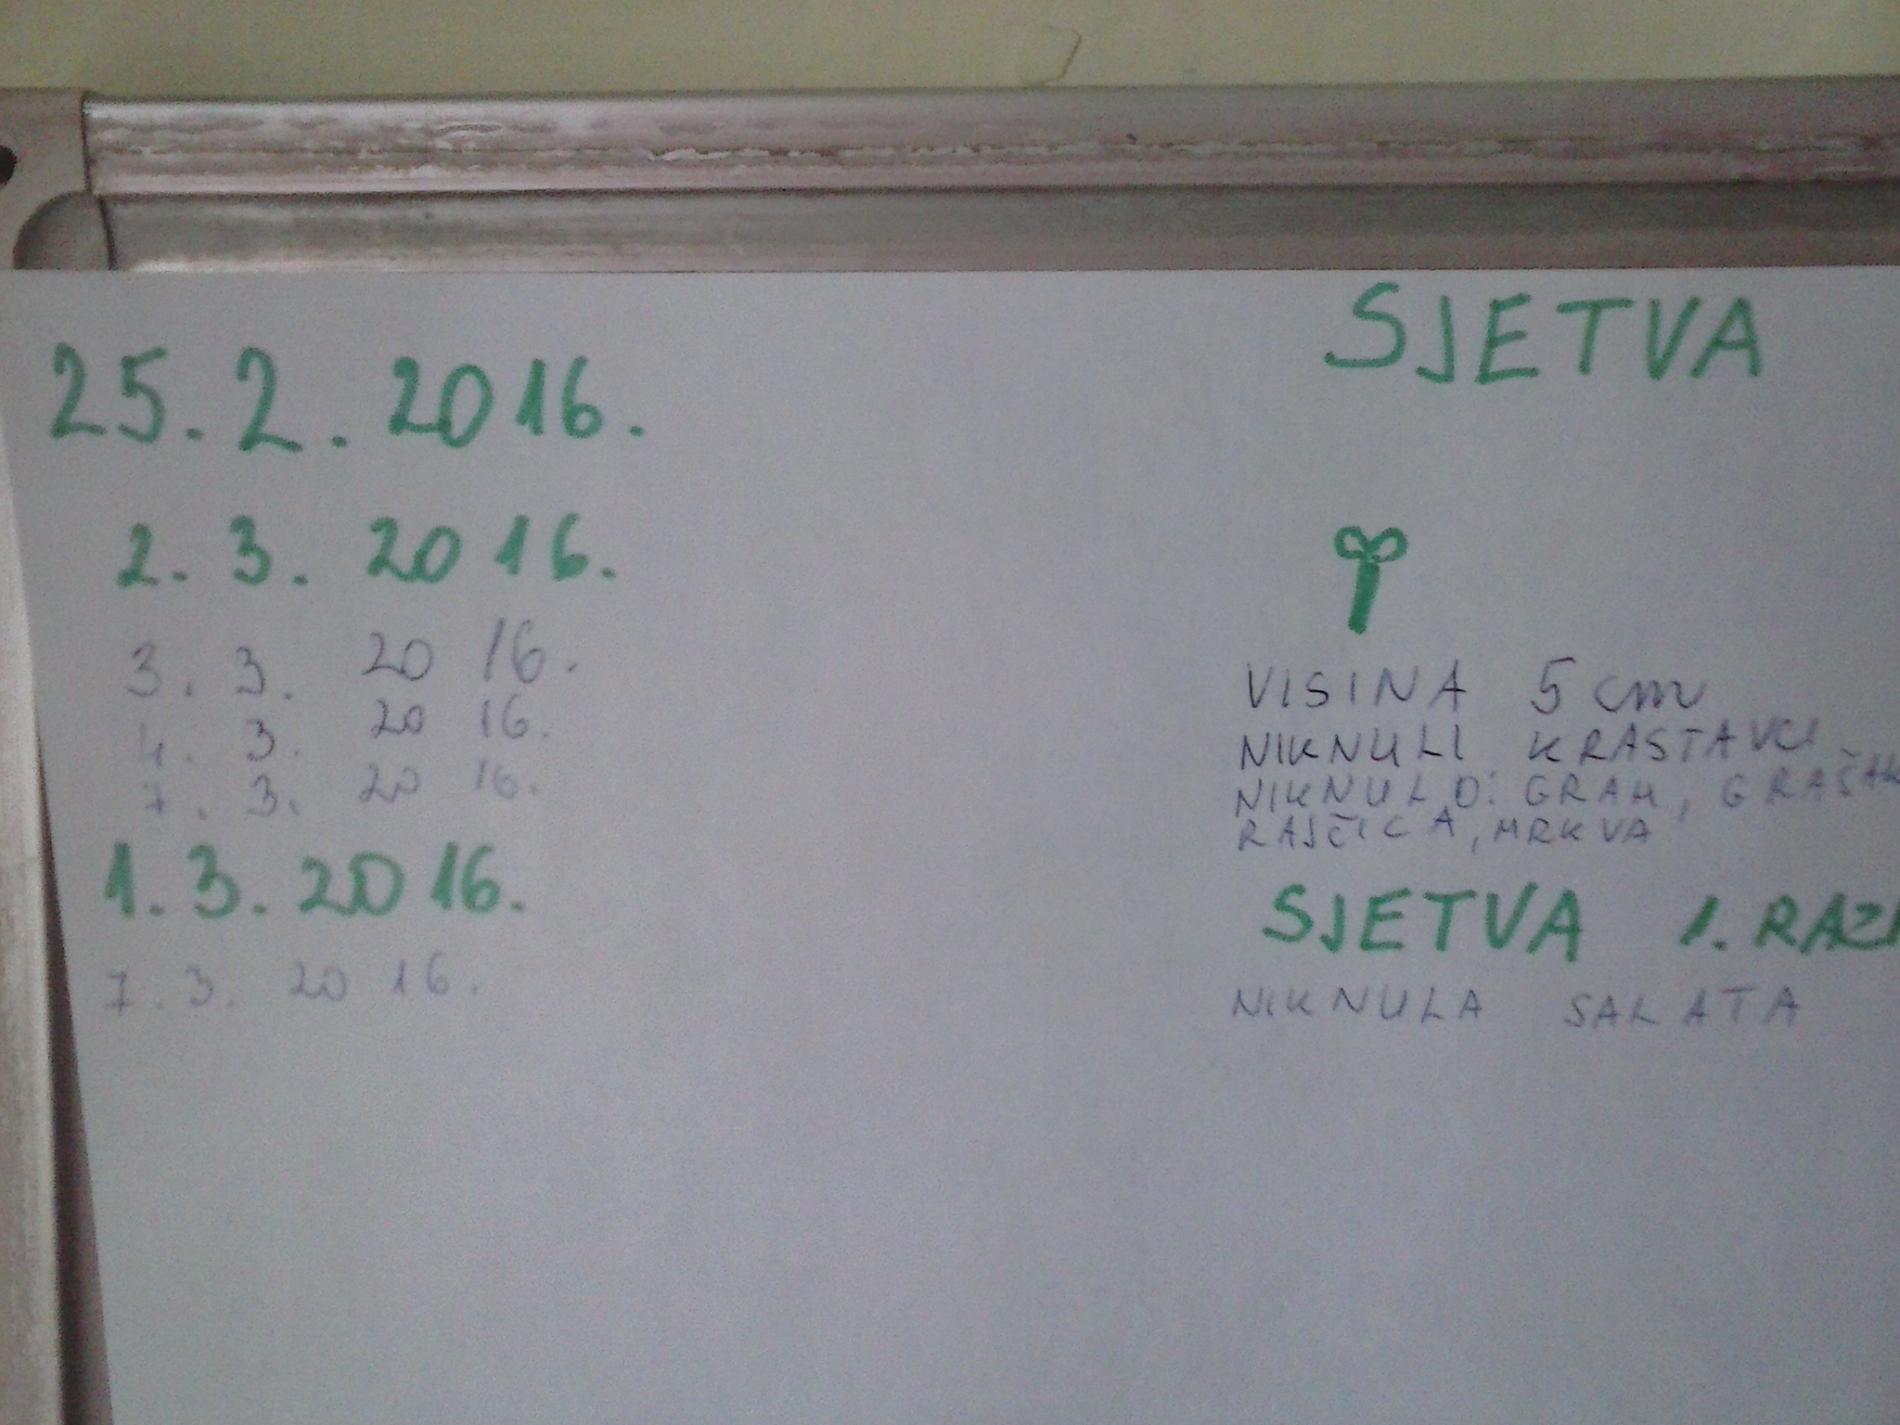 25. 2. 2016. SJETVA
2. 3. 2016.
3. 3. 2016. VISINA 5 cm
4. 3. 2016. NIKNULI KRASTAVCI
7. 3. 2016. NIKNULO: GRAH, GRAŠAK
RAJČICA, MRKVA
1. 3. 2016. SJETVA 1. RAZR
7. 3. 2016. NIKNULA SALATA